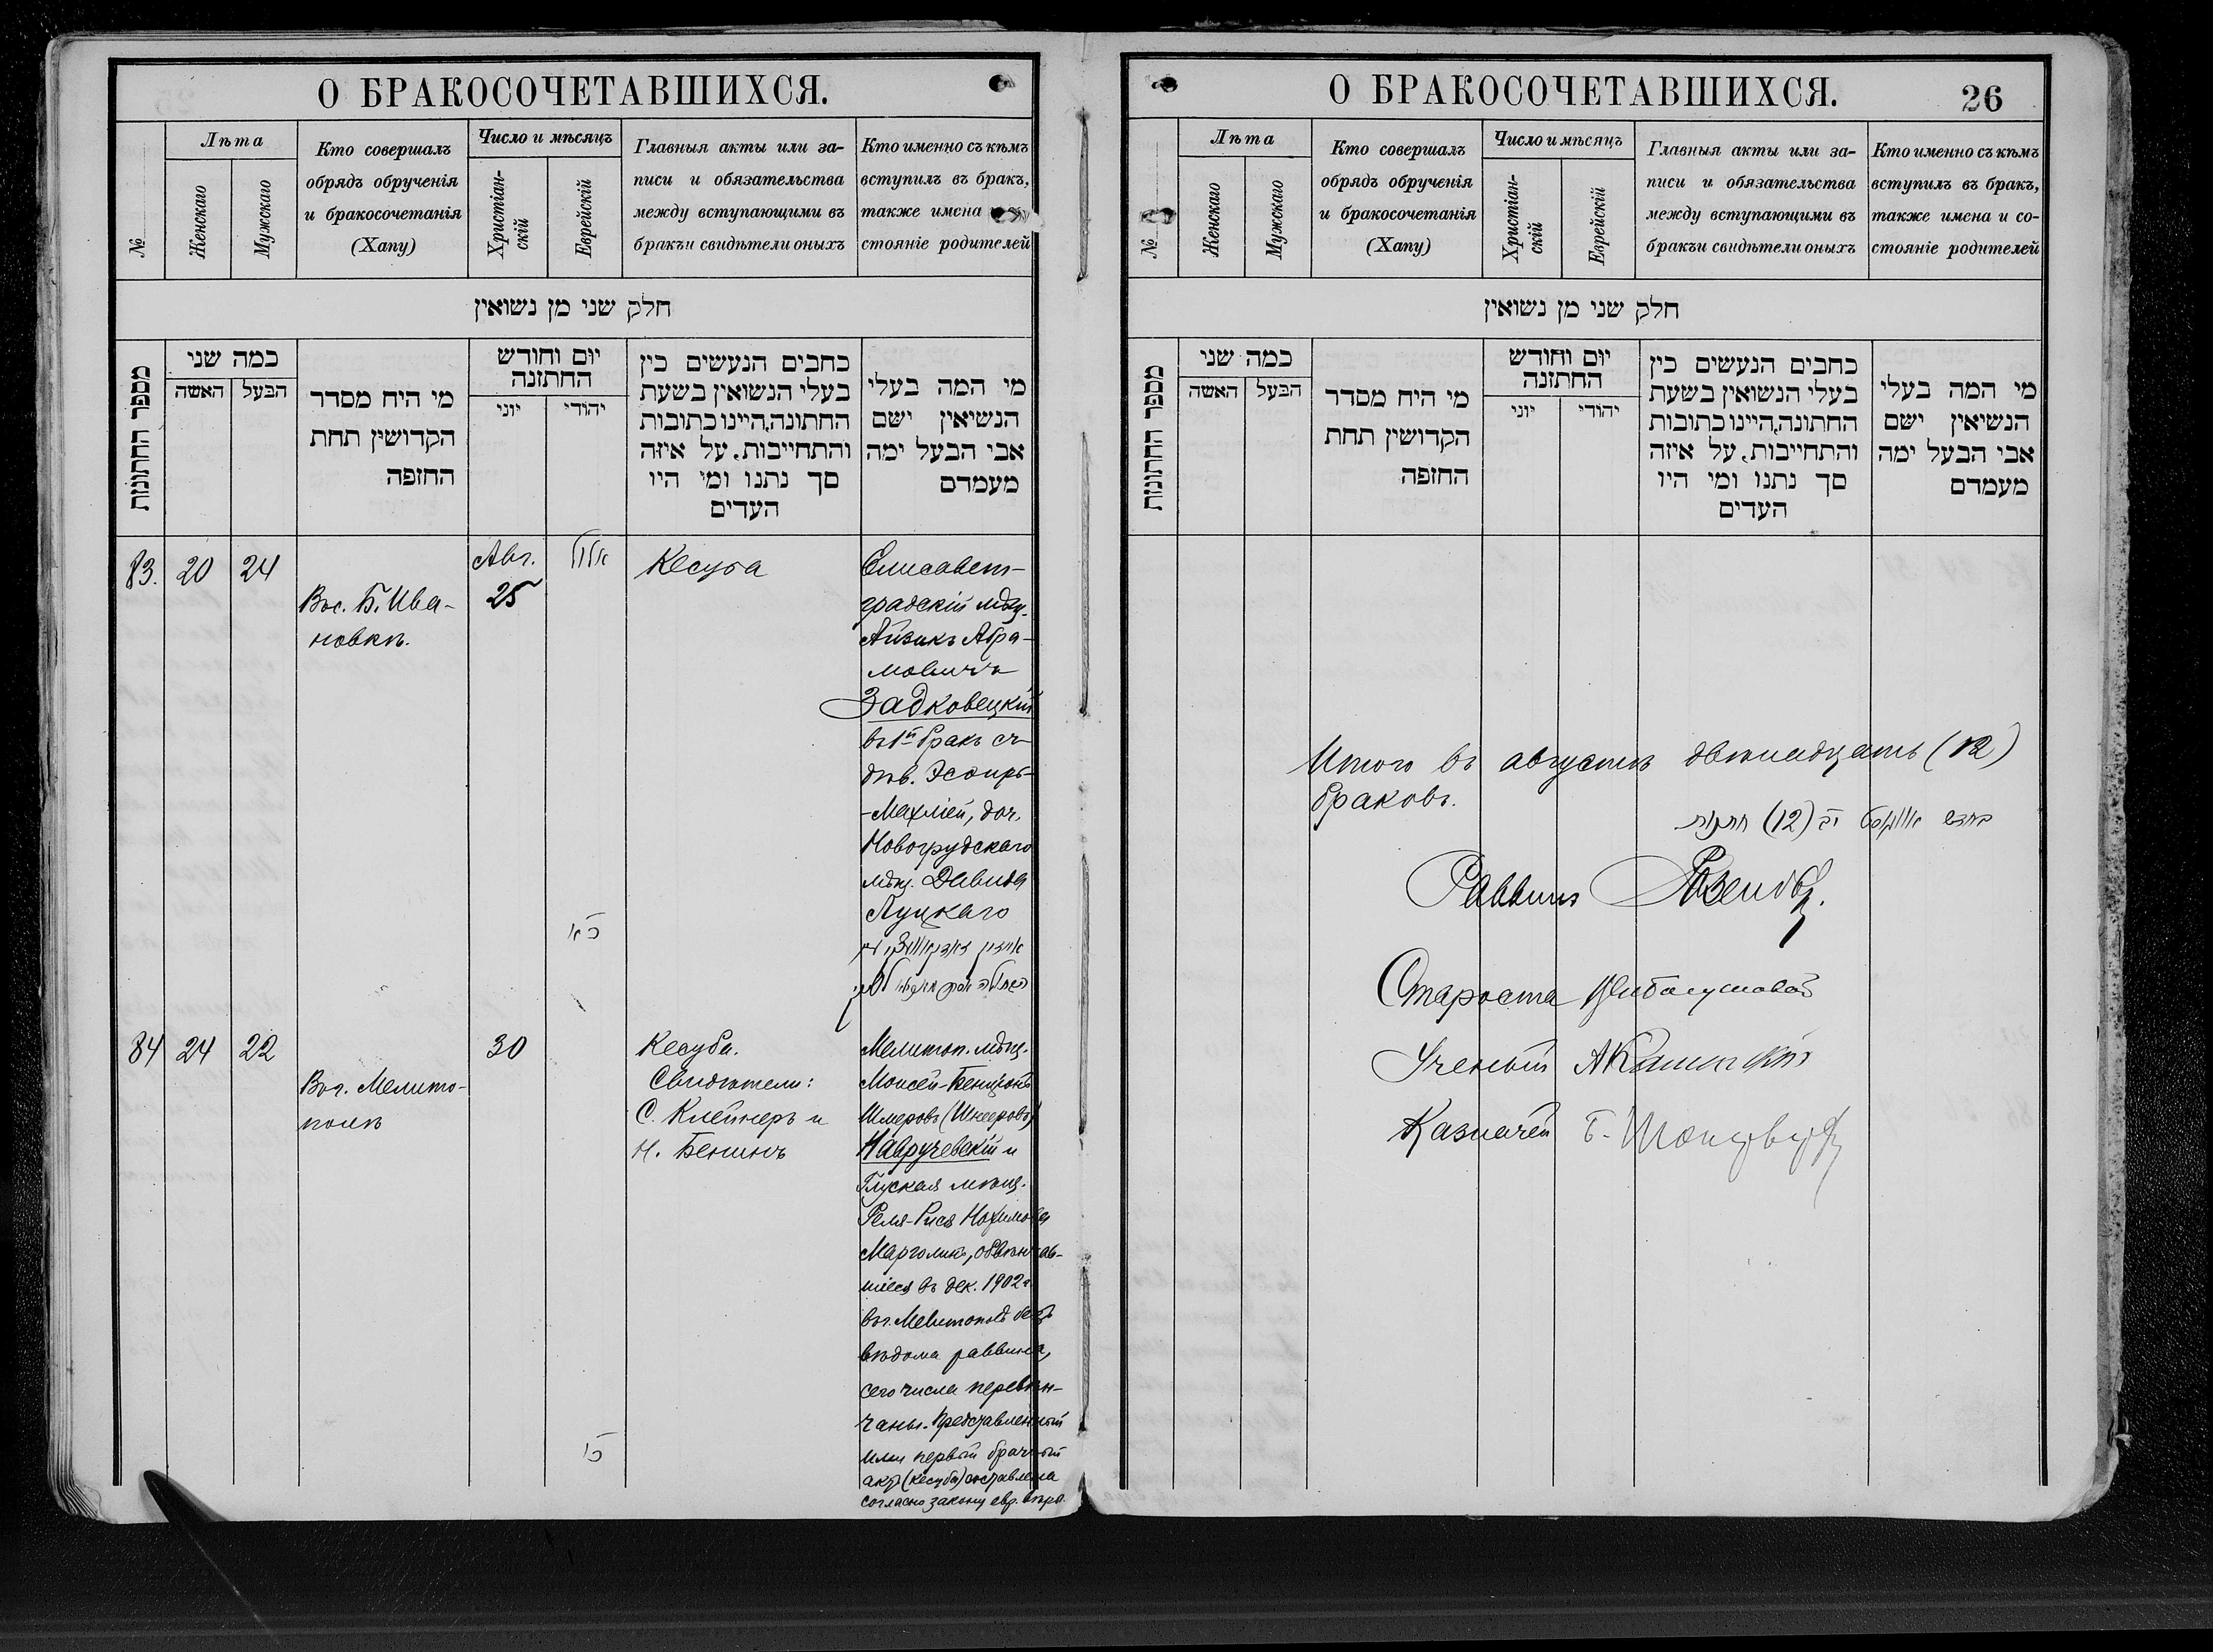 О БРАКОСОЧЕТАВШИХСЯ.
№
Лѣта
Женскаго
Мужскаго
Кто совершалъ
обрядъ обрученія
и бракосочетанія
(Хапу)
Число и мѣсяцъ
Христіан-
скій
Еврейскій
Главныя акты или за-
писи и обязательства
между вступающими въ
бракъи свидѣтели оныхъ
Кто именно съ кѣмъ
вступилъ въ бракъ,
также имена
стояніе родителей
חלק שני מן נשואין
מספר החתונות
כמה שני
האשה
הבעל
מי היח מסדר
הקדושין תחת
החופה
יום וחודש
החתונה
יוני
יהודי
כחבים הנעשים כין
בעלי הנשואין בשעת
החתונה,היינו כתובות
והתחייבות. על איזה
סך נתנו ומי היו
העדים
מי המה בעלי
הנשיאין ישם
אבי הבעל ימה
מעמדם
83. 20 24
Вос. Б. Ива-
новкѣ.
Авг.
25
אלול
כֿא
Кесуба
Елисавет-
градскій мѣщ.
Айзикъ Абра-
мовичъ
Задковецкій
въ 1й бракъ съ
дѣв. Эсѳирь-
-Махліей, доч.
Новогрудскаго
мѣщ. Давида
Луцкаго
84 24 22
Вог. Мелито-
полѣ
30
Кесуба.
Свидѣтели:
С. Клейнеръ и
Н. Бенинъ
Мелитоп. мѣщ.
Моисей-Бенціонъ
Шмеровъ (Шнееровъ)
Навручевскій и
Глуская мѣщ.
Реля-Рися Нохимова
Марголинъ, обвѣнчав-
шіеся въ дек. 1902 г.
въ г. Мелитополѣ безъ
вѣдома раввина,
сего числа перевѣн-
чаны. Представленный
ими первый брачный
актъ (кесуба) составлена
согласно закону евр. вѣро.
О БРАКОСОЧЕТАВШИХСЯ.
26
№
Лѣта
Женскаго
Мужскаго
Кто совершалъ
обрядъ обрученія
и бракосочетанія
(Хапу)
Число и мѣсяцъ
Христіан-
скій
Еврейскій
Главныя акты или за-
писи и обязательства
между вступающими въ
бракъи свидѣтели оныхъ
Кто именно съ кѣмъ
вступилъ въ бракъ,
также имена и со-
стояніе родителей
חלק שני מן נשואין
מספר החתונות
כמה שני
האשה
הבעל
מי היח מסדר
הקדושין תחת
החופה
יום וחודש
החתונה
יוני
יהודי
כחבים הנעשים כין
בעלי הנשואין בשעת
החתונה,היינו כתובות
והתחייבות, על איזה
סך נתנו ומי היו
העדים
מי המה בעלי
הנשיאין ישם
אבי הבעל ימה
מעמדם
Итого въ августѣ двѣнадцать (12)
браковъ.
בחדש אוגוסט יב (12) חתונות
Раввинъ
Староста
Ученый
Казначей